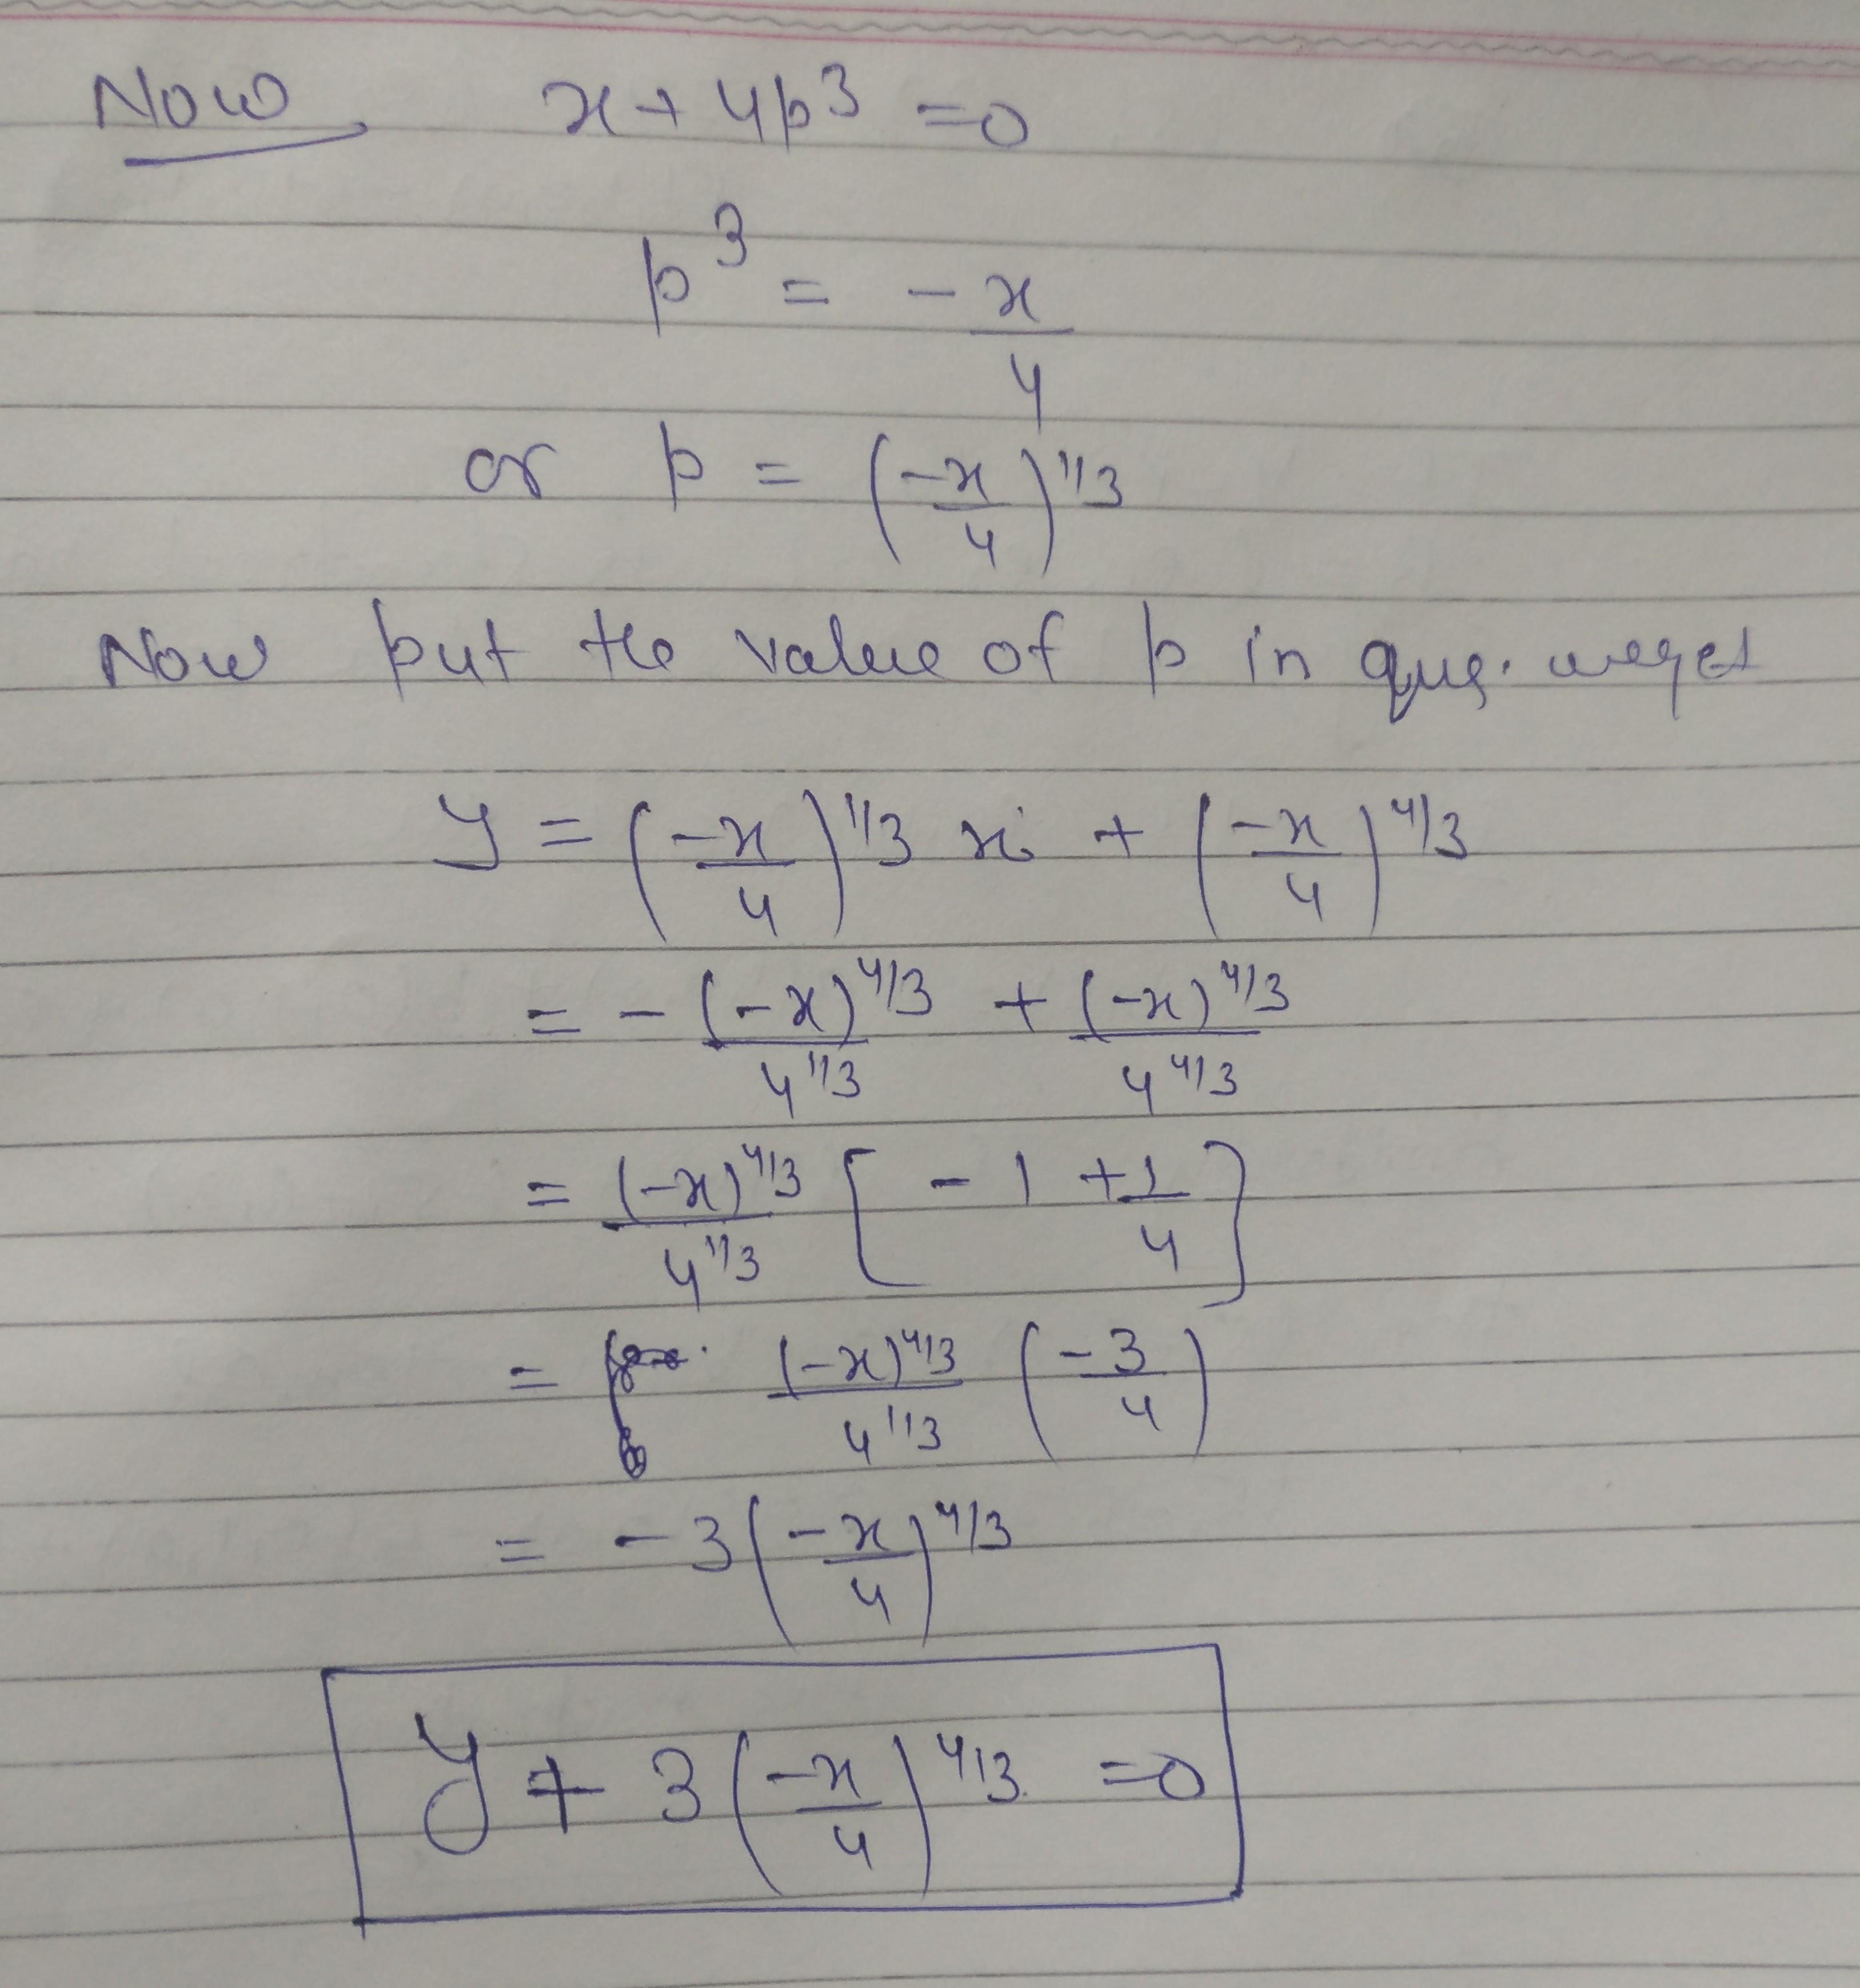 Now x + 4p³ = 0
p³ = -x/4
or p = (-x/4)^1/3
Now put the value of p in que. we get
y = (-x/4)^1/3 x + (-x/4)^4/3
= - (-x)^4/3 / 4^1/3 + (-x)^4/3 / 4^4/3
= (-x)^4/3 / 4^1/3 [ -1 + 1/4 ]
= (-x)^4/3 / 4^1/3 (-3/4)
= -3 (-x/4)^4/3
y + 3 (-x/4)^4/3 = 0